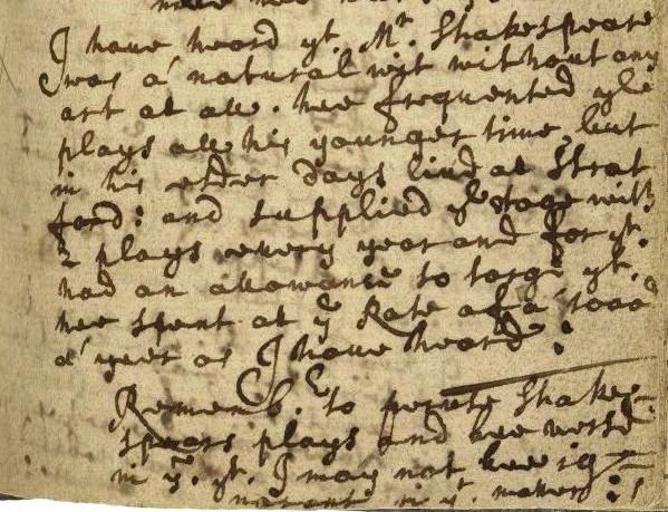 I haue heard yt. Mr. Shakespeare
was a natural wit without any
art at all. hee frequented ye
plays all his younger time, but
in his elder days liud at Strat
ford: and supplied ye stage with
2 plays euery year and for yt.
had an allowance so large yt.
hee spent at ye Rate of a 1000l
a year as I haue heard:
Rememb. to peruse Shake-
spears plays and bee versd
in ym. yt. I may not bee ig-
norant in yt. matter: